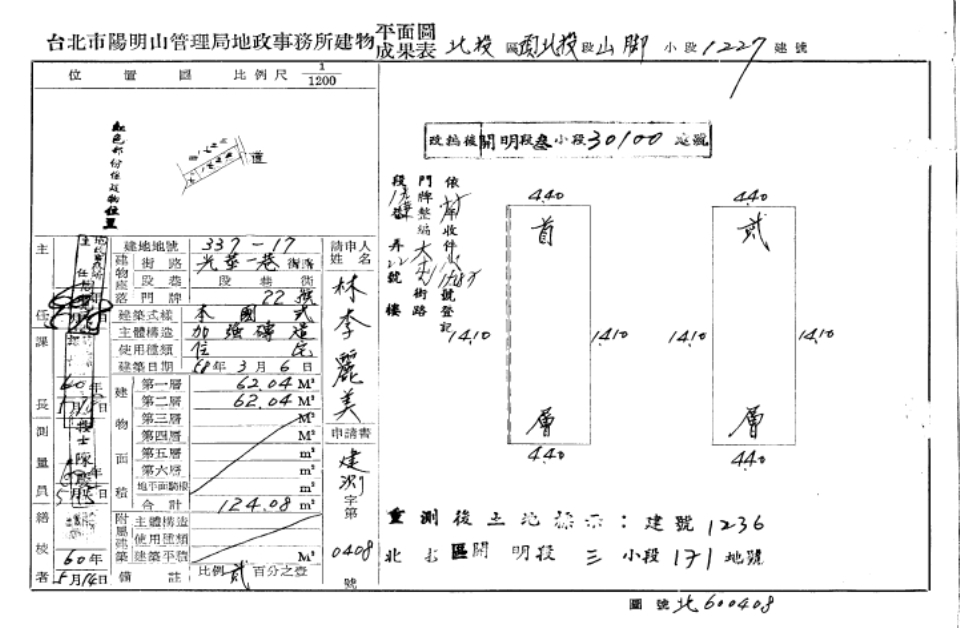 台北市陽明山管理局地政事務所建物平面圖成果表 北投區頂北投段山脚小段1227建號
位置圖 比例尺 1/1200
紅色部份係建物位置
道
改編後開明段叁小段30100建號
建地地號 337-17
建物座落
街路 光華一巷 街路
段巷 段巷街
門牌 22號
建築式樣 本國式
主體構造 加強磚造
使用種類 住宅
建築日期 58年3月6日
建物面積
第一層 62.04 M²
第二層 62.04 M²
第三層 M²
第四層 M²
第五層 m²
第六層 m²
地平面騎樓 m²
合計 124.08 m²
附屬建築
主體構造
使用種類
建築平積 M²
備註 比例貳百分之壹
請申人姓名
林李麗美
申請書
建測字第
0408
號
主任
課長
60年
月日
測量員
技士陳
年
5月日
繕校者
60年
5月14日
依
年收件
號登記
門牌整編
街路
段
巷
弄
22號
樓
4.40
首層
14.10
14.10
4.40
4.40
貳層
14.10
14.10
4.40
重測後土地標示：建號1236
北投區開明段三小段171地號
圖號北600408